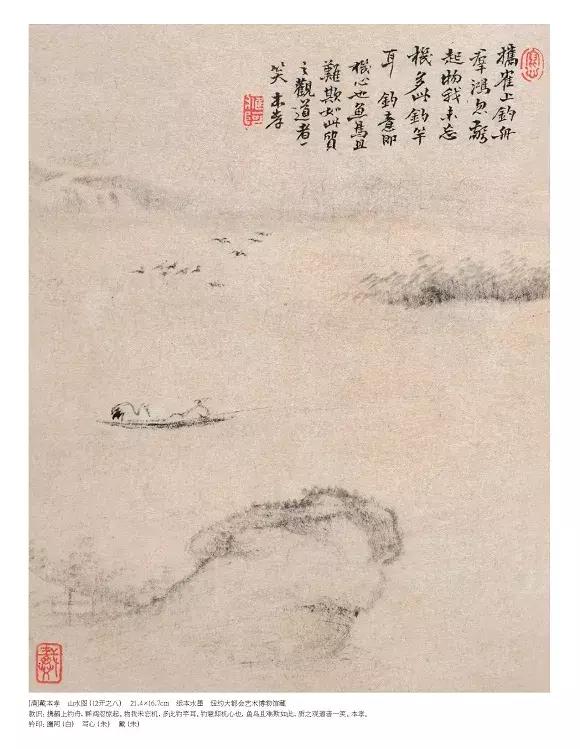 攜隺上釣舟
羣鴻忽驚
起物我未忘
機多此釣竿
耳 釣意即
機心也魚鳥且
難欺如此質
之觀道者一
笑 本孝
[清]戴本孝 山水图 (12开之八) 21.4×16.7cm 纸本水墨 纽约大都会艺术博物馆藏
款识：携鹤上钓舟，群鸿忽惊起。物我未忘机，多此钓竿耳。钓意即机心也，鱼鸟且难欺如此，质之观道者一笑。本孝。
钤印：鹰阿（白） 写心（朱） 戴（朱）